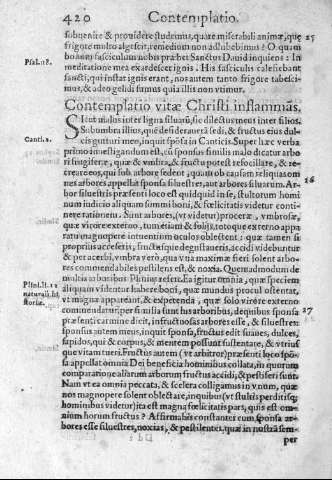 420 Contemplatio.
subuenire & prouidere studemus, quàm miserabili animæ, quæ 25
frigore multo alget, remedium non adhibemus? O quàm
Psal.18. bonam fasciculum nobis præbet Sanctus Dauid inquiens: In
meditatione mea exardescet ignis. His fasciculis calefiebant
sancti, qui instar ignis erant, nos autem tanto frigore tabesci-
mus, & adeo gelidi sumus quia illis non vtimur.
Contemplatio vitæ Christi inflammás.
Sicut malus inter ligna siluarũ, sic dilectus meus inter filios.
Cant.2. Sub vmbra illius, quẽ desideraueră sedi, & fructus eius dul-
cis gutturi meo, inquit sponsa in Canticis. Super hæc verba
primo inuestigandum est, cur sponsus similis malo dicatur arbo
ri frugiferæ, quæ & vmbra, & fructu potest refocillare, & re-
creare eos, qui sub arbore sedent, quam ob causam reliquas om 26
nes arbores, appellat sponsa siluestres, aut arbores siluarum. Ar
bor siluestris præsenti loco est quidquid in se, stultorum homi
num iudicio aliquam summi boni, & fœlicitatis videtur conti-
nere rationem. Sunt arbores, (vt videtur) proceræ, vmbrosæ,
quæ virore externo, tum etiam & folijs, totoque externo appa
ratu magnopere intuentium oculos oblectent: quæ tamen si
propriùs accesseris, fructusque degustaueris, acidi videbuntur
& peracerbi, vmbra verò, qua vna maximæ fieri solent arbo-
res commendabiles pestilens est, & noxia. Quemadmodum de
Plinl.12 multis arboribus Plinius asserit. Ea igitur omnia, quæ speciem
naturali. hi aliquam videntur habere boni, quæ mundus procul ostentat,
storiæ. vt magna appareant, & expetenda, quæ solo virore externo
commendantur persimilia sunt his arboribus, degunt sponsa 27
præsenti carmine dicit, infructuosas arbores esse, & siluestres
sponsus autem meus, inquit sponsa, fructus edit suaues, dulces,
sapidos, qui & corpus, & mentem possunt sustentare, & vtrius
que vitam tueri. Fructus autem (vt arbitror) præsenti loco spõ
sa appellat omnia Dei beneficia hominibus collata, in quorum
comparatione aliarum arborum fructus accidi, & pestiferi sunt.
Nam vt ea omnia peccata, & scelera colligamus in vnum, quæ
nos magnopere solent oblectare, in quibus (vt stultis perditisq;
hominibus videtur) ita est magna fœlicitatis pars, quis est om-
nium horum fructus? Affirmabis constanter cum sponsa ar-
bores esse siluestres, noxias, & pestilentes, quæ in nostra sem-
per